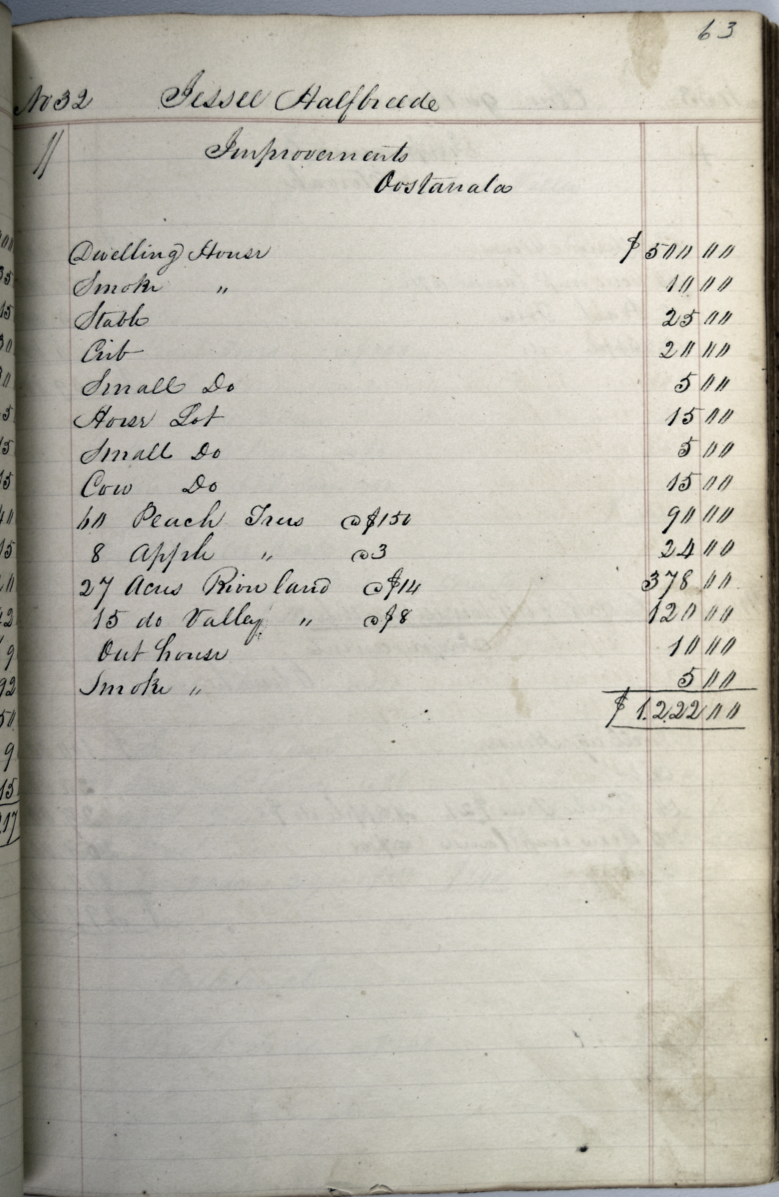 63
No 32 Jessee Halfbreede
11 Improvements
Oostanala
Dwelling House $ 500 00
Smoke " 10 00
Stable 25 00
Crib 20 00
Small Do 5 00
Horse Lot 15 00
Small Do 5 00
Cow Do 15 00
60 Peach Trees @ $150 90 00
8 Apple " @ 3 24 00
27 Acres River land @ $14 378 00
15 do Valley " @ $8 120 00
Out house 10 00
Smoke " 5 00
$ 1.222 00